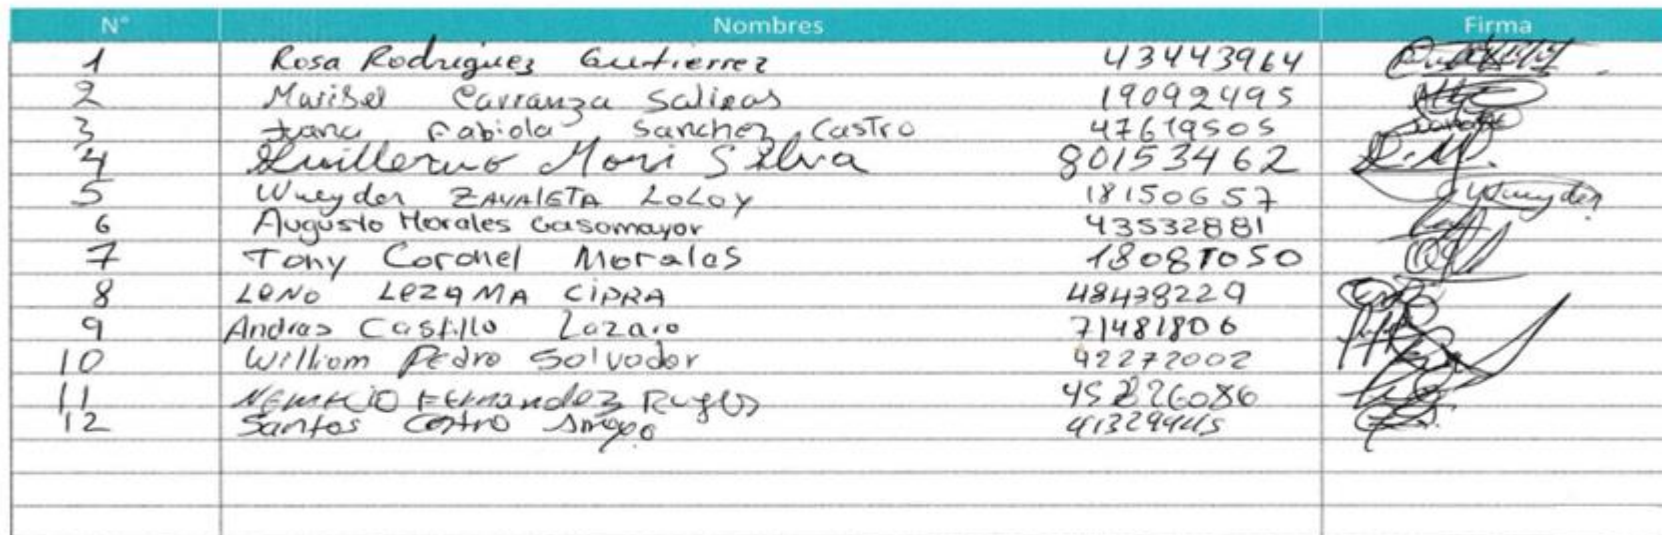 N° Nombres Firma
1 Rosa Rodriguez Gutierrez 43443964
2 Maribel Carranza Salinas 19092495
3 Juana Fabiola Sanchez Castro 47619505
4 Guillermo Mori Silva 80153462
5 Wueyder ZAVALETA LOLOY 18150657 Wueyder
6 Augusto Morales Casomayor 43532881
7 Tony Coronel Morales 18081050
8 LENO LEZAMA CIPRA 48438229
9 Andres Castillo Lazaro 71481806
10 William Pedro Salvador 42272002
11 NEMECIO FERNANDEZ 45226086
12 Santos Castro 41329445